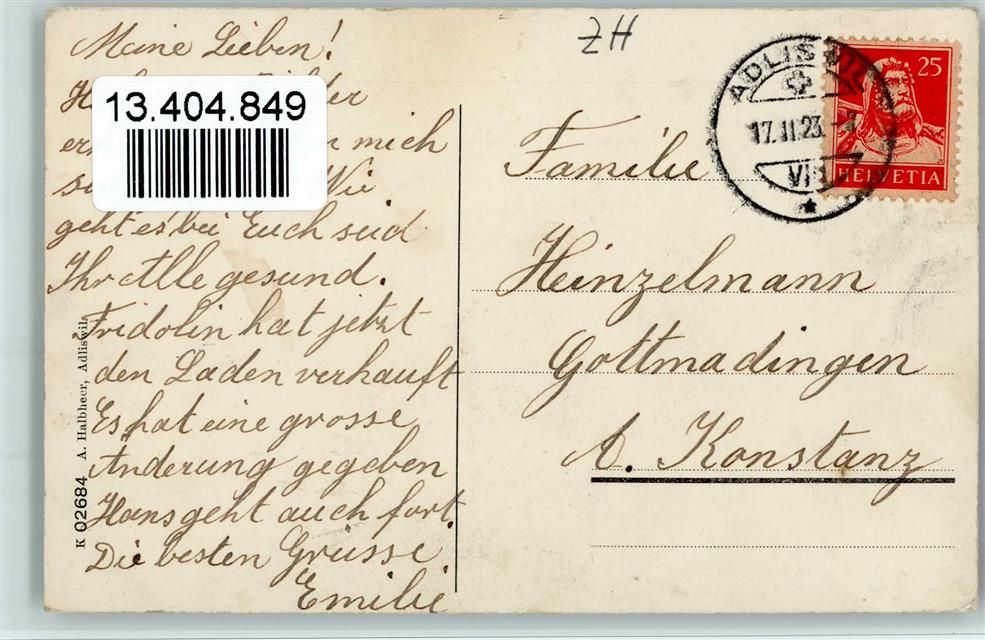 Meine Lieben!
13.404.849
mich
Wie
geht es bei Euch seid
Ihr Alle gesund.
Fridolin hat jetzt
den Laden verkauft
Es hat eine grosse
Änderung gegeben
Hans geht auch fort.
Die besten Grüsse
Emilie
K 02684 A. Halbheer, Adliswil
ZH
ADLISWIL
17.II.23.
VII
25
HELVETIA
Familie
Heinzelmann
Gottmadingen
A. Konstanz